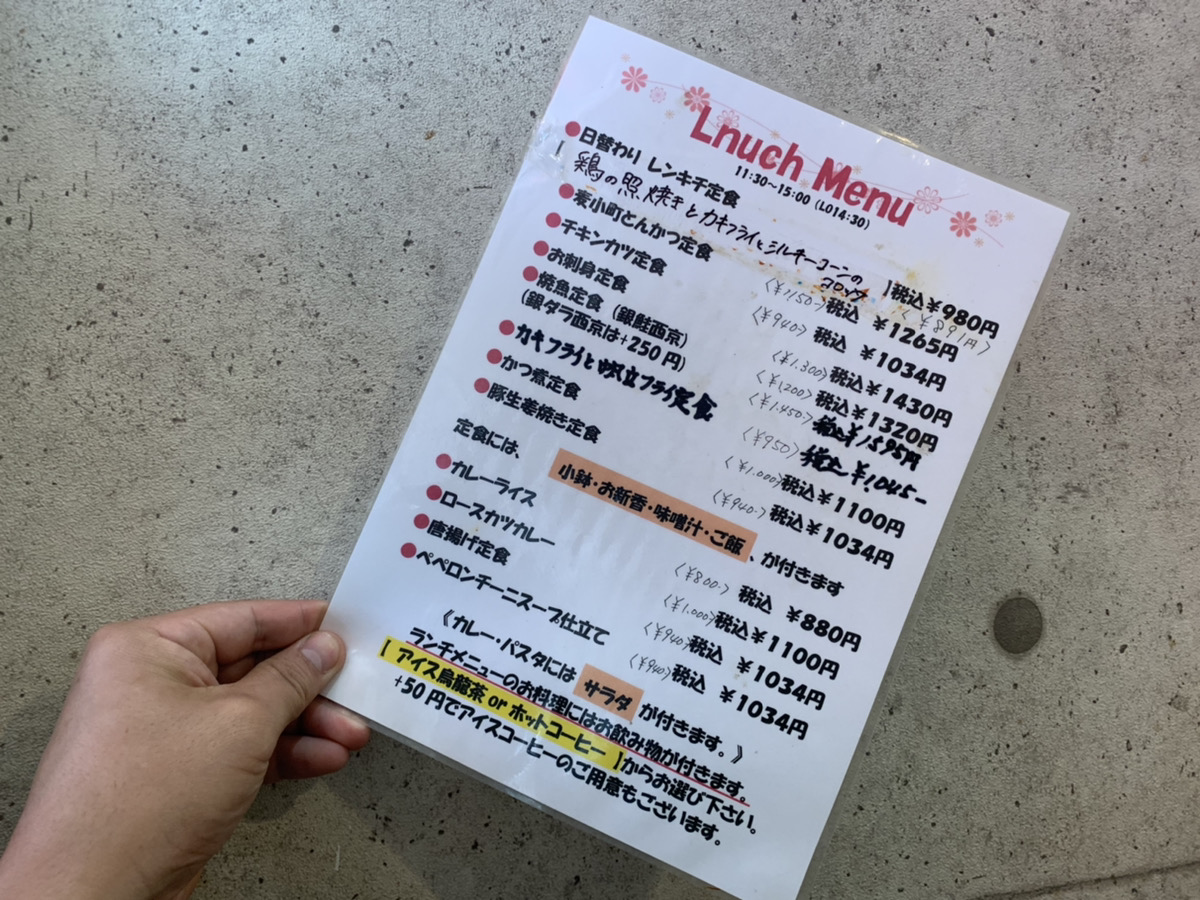 Lnuch Menu
11:30～15:00（LO14:30）
●日替わり レンキチ定食
[ 鶏の照焼きとカキフライとシルキーコーンのコロッケ ]税込￥980円
〈￥891円〉
●麦小町とんかつ定食 〈￥1150-〉税込 ￥1265円
●チキンカツ定食 〈￥940-〉税込 ￥1034円
●お刺身定食 〈￥1.300〉税込￥1430円
●焼魚定食（銀鮭西京） 〈￥1200〉税込￥1320円
（銀ダラ西京は+250円） 〈￥1.450-〉税込￥1595円
●カキフライと帆立フライ定食 〈￥950〉税込￥1,045-
●かつ煮定食 〈￥1.000〉税込￥1100円
●豚生姜焼き定食 〈￥940-〉税込￥1034円
定食には、小鉢・お新香・味噌汁・ご飯、が付きます
●カレーライス 〈￥800-〉税込 ￥880円
●ロースカツカレー 〈￥1.000〉税込￥1100円
●唐揚げ定食 〈￥940〉税込 ￥1034円
●ペペロンチーニスープ仕立て 〈￥940〉税込 ￥1034円
《カレー・パスタには サラダ が付きます。》
ランチメニューのお料理にはお飲み物が付きます。
[ アイス烏龍茶 or ホットコーヒー ]からお選び下さい。
+50円でアイスコーヒーのご用意もございます。